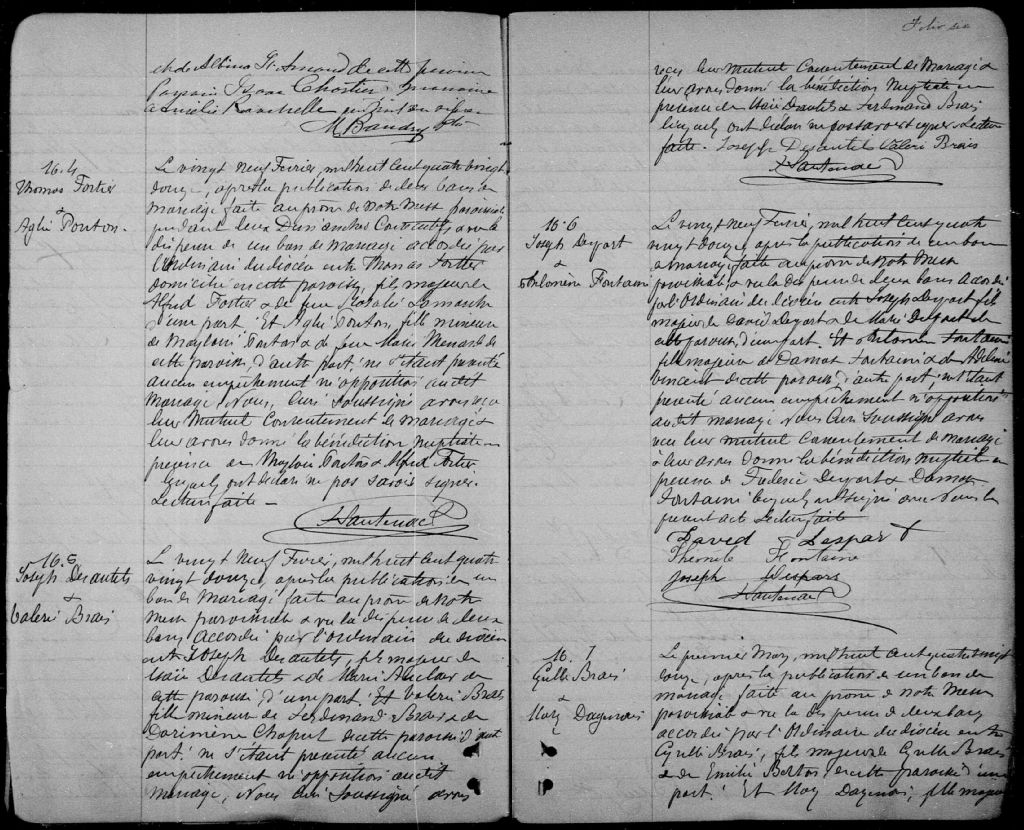 et de Albina St. Arnaud de cette paroisse
M Baudry ptre
M. 4
Thomas Fortier
&
Aglie Ponton.
Le vingt neuf Fevrier, mil huit cent quatre vingt
douze, apres la publication de deux bans de
mariage faite au prone de notre Messe paroissiale
pendant deux Dimanches Consecutifs & vu la
dispense de un ban de mariage accordee par
l'Ordinaire du diocese entre Thomas Fortier
domicilie en cette paroisse, fils majeur de
Alfred Fortier & de feue Rosalie Lamarche
d'une part. Et Aglie Ponton, fille mineure
de Ponton & de feue Marie Menard de
cette paroisse, d'autre part, ne s'etant presente
aucun empechement ni opposition au dit
mariage, Nous, Cure Soussigne avons recu
leur Mutuel Consentement de mariage &
leur avons donne la benediction Nuptiale en
presence de Ponton & Alfred Fortier
lesquels ont declare ne pas savoir signer.
Lecture faite -
M. 5
Joseph Desautels
&
Valerie Brais
Le vingt Neuf Fevrier, mil huit cent quatre
vingt douze, apres la publication de un
ban de Mariage faite au prone de Notre
Messe paroissiale & vu la dispense de deux
bans accordee par l'Ordinaire du diocese
entre Joseph Desautels, fils majeur de
Isaie Desautels & de Marie Auclair de
cette paroisse, d'une part. Et Valerie Brais
fille mineure de Ferdinand Brais & de
Chaput de cette paroisse d'autre
part, ne s'etant presente aucun
empechement ni opposition au dit
mariage, Nous cure Soussigne avons
Folio six
recu leur Mutuel Consentement de Mariage &
leur avons donne la benediction Nuptiale en
presence de Isaie Desautels & Ferdinand Brais
lesquels ont declare ne pas savoir signer. Lecture
faite. Joseph Desautel Valeri Brais
M. 6
Joseph Despart
&
Philomene Fontaine
Le vingt Neuf Fevrier, mil huit cent quatre
vingt douze, apres la publication de un ban
de mariage faite au prone de Notre Messe
paroissiale, & vu la dispense de deux bans accordee
par l'Ordinaire du diocese entre Joseph Despart fils
majeur de David Despart & de Marie Despart de
cette paroisse, d'une part. Et Philomene Fontaine
fille majeure de Damas Fontaine & de Adeline
Vincent de cette paroisse, d'autre part, n'etant
presente aucun empechement ni opposition
au dit mariage Nous Cure Soussigne avons
recu leur mutuel Consentement de mariage
& leur avons donne la benediction Nuptiale en
presence de Despart & Damas
Fontaine lesquels ont signe avec Nous le
present acte Lecture faite
David Despart
Fontaine
Joseph Despars
M. 7
Cyrille Brais
&
Mary Dagenais
Le premier May, mil huit cent quatre vingt
douze, apres la publication de un ban de
mariage faite au prone de Notre Messe
paroissiale & vu la dispense de deux bans
accordee par l'Ordinaire du diocese entre
Cyrille Brais, fils majeur de Cyrille Brais
& de Emilie de cette paroisse d'une
part. Et Mary Dagenais, fille majeure